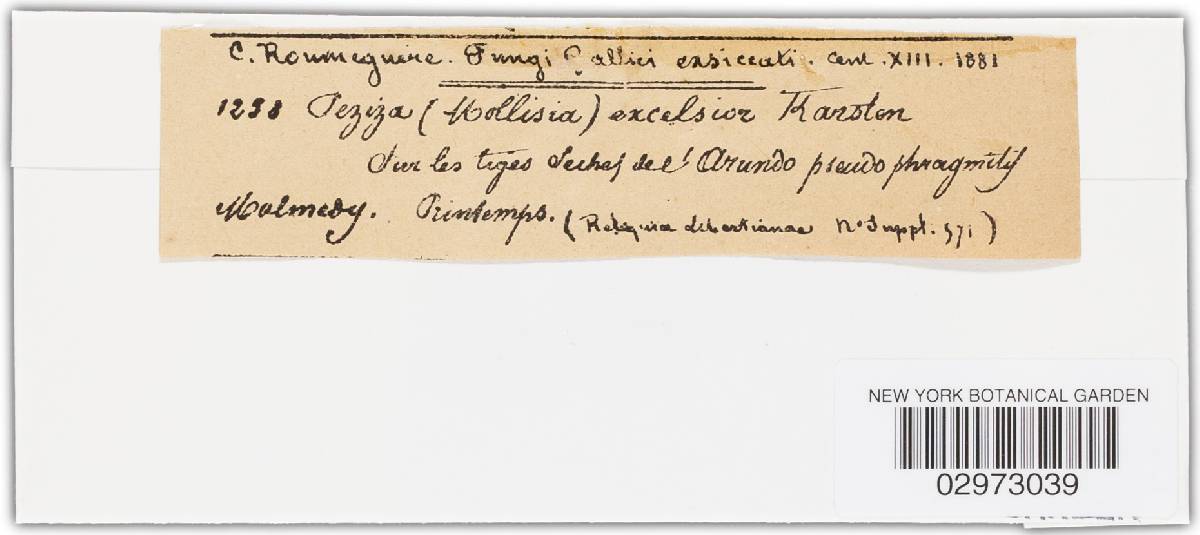 C. Roumeguère. Fungi Gallici exsiccati. Cent. XIII. 1881
1238 Peziza (Mollisia) excelsior Karsten
Sur les tiges seches de l'Arundo pseudo phragmitis
Malmedy. Printemps. (Reliquiae Libertianae No Suppl. 571)
NEW YORK BOTANICAL GARDEN
02973039